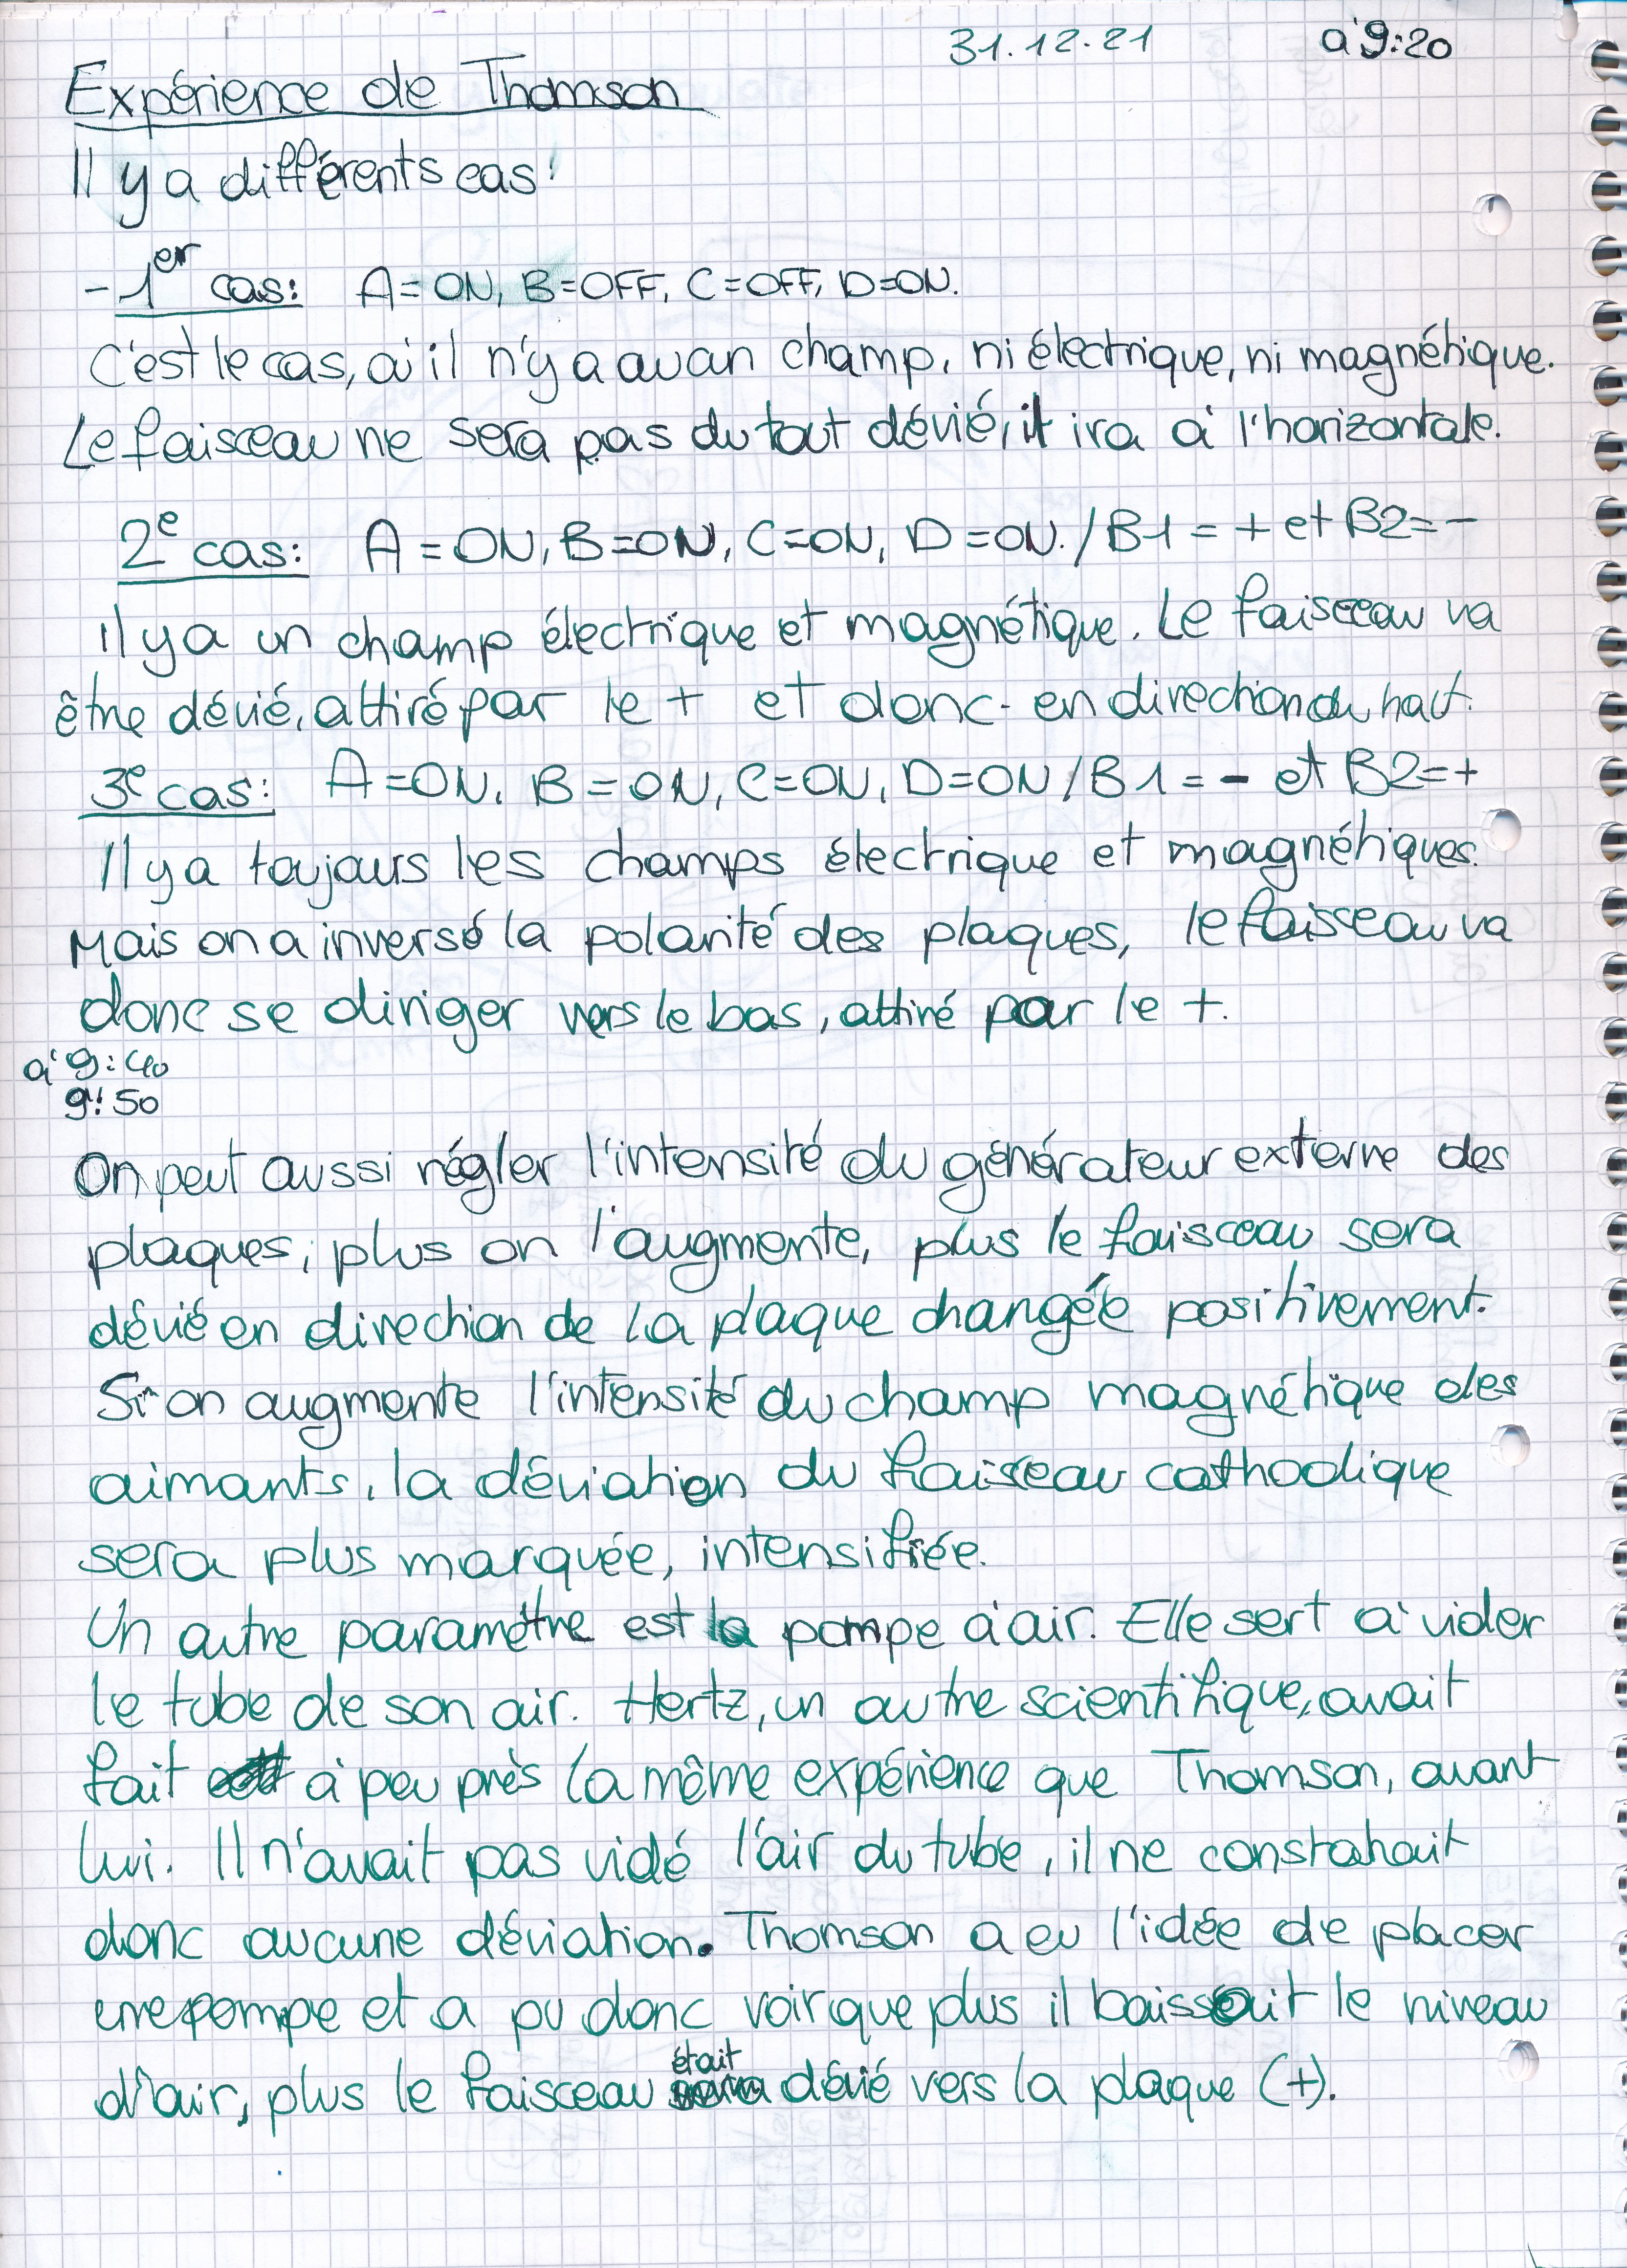 31.12.21 à 9:20
Expérience de Thomson
Il y a différents cas:
- 1er cas: A=ON, B=OFF, C=OFF, D=ON.
C'est le cas, où il n'y a aucun champ, ni électrique, ni magnétique.
Le faisceau ne sera pas du tout dévié, il ira à l'horizontale.
2e cas: A=ON, B=ON, C=ON, D=ON. / B1=+ et B2=-
Il y a un champ électrique et magnétique. Le faisceau va
être dévié, attiré par le + et donc en direction du haut.
3e cas: A=ON, B=ON, C=ON, D=ON / B1=- et B2=+
Il y a toujours les champs électrique et magnétiques.
Mais on a inversé la polarité des plaques, le faisseau va
donc se diriger vers le bas, attiré par le +.
à 9:40
9:50
On peut aussi régler l'intensité du générateur externe des
plaques, plus on l'augmente, plus le faisceau sera
dévié en direction de la plaque changée positivement.
Si on augmente l'intensité du champ magnétique des
aimants, la déviation du faisceau cathodique
sera plus marquée, intensifiée.
Un autre paramètre est la pompe à air. Elle sert à vider
le tube de son air. Hertz, un autre scientifique, avait
fait à peu près la même expérience que Thomson, avant
lui. Il n'avait pas vidé l'air du tube, il ne constatait
donc aucune déviation. Thomson a eu l'idée de placer
une pompe et a pu donc voir que plus il baissait le niveau
d'air, plus le faisceau était dévié vers la plaque (+).